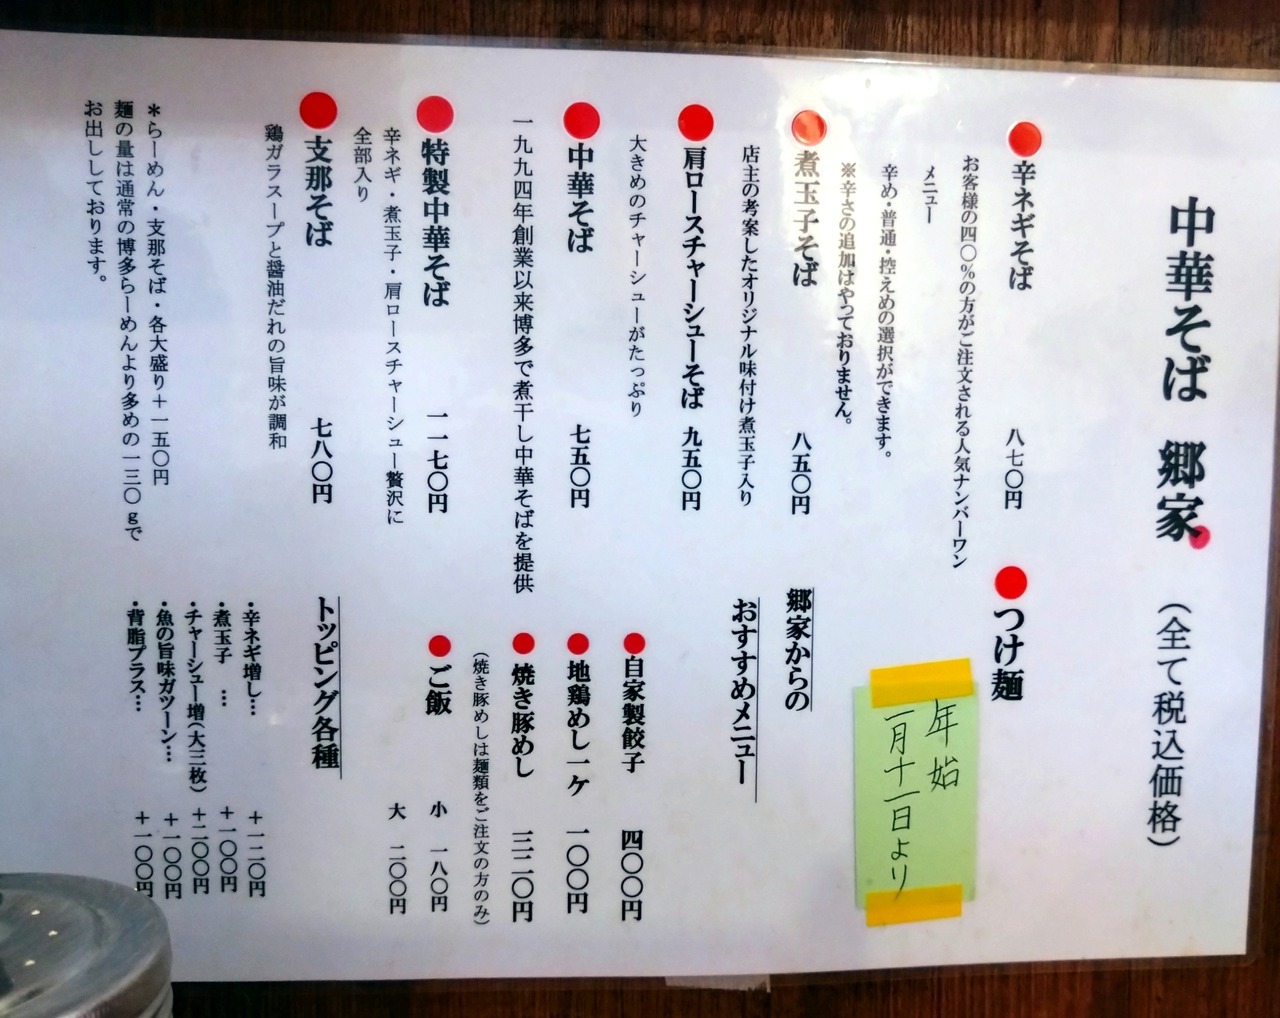 中華そば 郷家 (全て税込価格)
辛ネギそば 八七〇円
お客様の四〇%の方がご注文される人気ナンバーワン
メニュー
辛め・普通・控えめの選択ができます。
※辛さの追加はやっておりません。
煮玉子そば 八五〇円
店主の考案したオリジナル味付け煮玉子入り
肩ロースチャーシューそば 九五〇円
大きめのチャーシューがたっぷり
中華そば 七五〇円
一九九四年創業以来博多で煮干し中華そばを提供
特製中華そば 一一七〇円
辛ネギ・煮玉子・肩ロースチャーシュー贅沢に
全部入り
支那そば 七八〇円
鶏ガラスープと醤油だれの旨味が調和
*らーめん・支那そば・各大盛り+一五〇円
麺の量は通常の博多らーめんより多めの一三〇gで
お出ししております。
つけ麺
年始
一月十一日より
郷家からの
おすすめメニュー
自家製餃子 四〇〇円
地鶏めし一ケ 一〇〇円
焼き豚めし 三二〇円
(焼き豚めしは麺類をご注文の方のみ)
ご飯 小 一八〇円
大 二〇〇円
トッピング各種
・辛ネギ増し… +一二〇円
・煮玉子 … +一〇〇円
・チャーシュー増(大三枚) +二〇〇円
・魚の旨味ガツーン… +一〇〇円
・背脂プラス… +一〇〇円